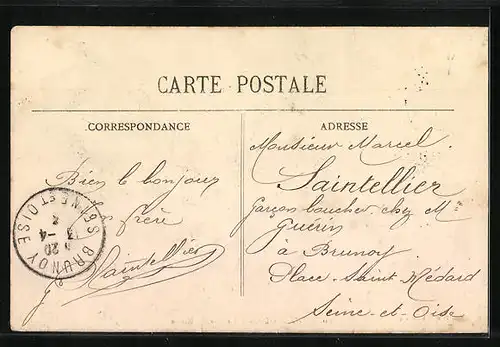 CARTE POSTALE
CORRESPONDANCE
ADRESSE
Bien le bonjour
frère
Saintellier
BRUNOY
SEINE ET OISE
Monsieur Marcel
Saintellier
garçon boucher chez Mr
Guérin
à Brunoy
Place Saint Médard
Seine-et-Oise